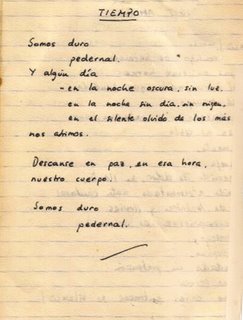 TIEMPO
Somos duro
pedernal.
Y algún día
- en la noche oscura, sin luz,
en la noche sin día, sin
en el silente olvido de los más
nos abimos.
Descanse en paz, en esa hora,
nuestro cuerpo.
Somos duro
pedernal.